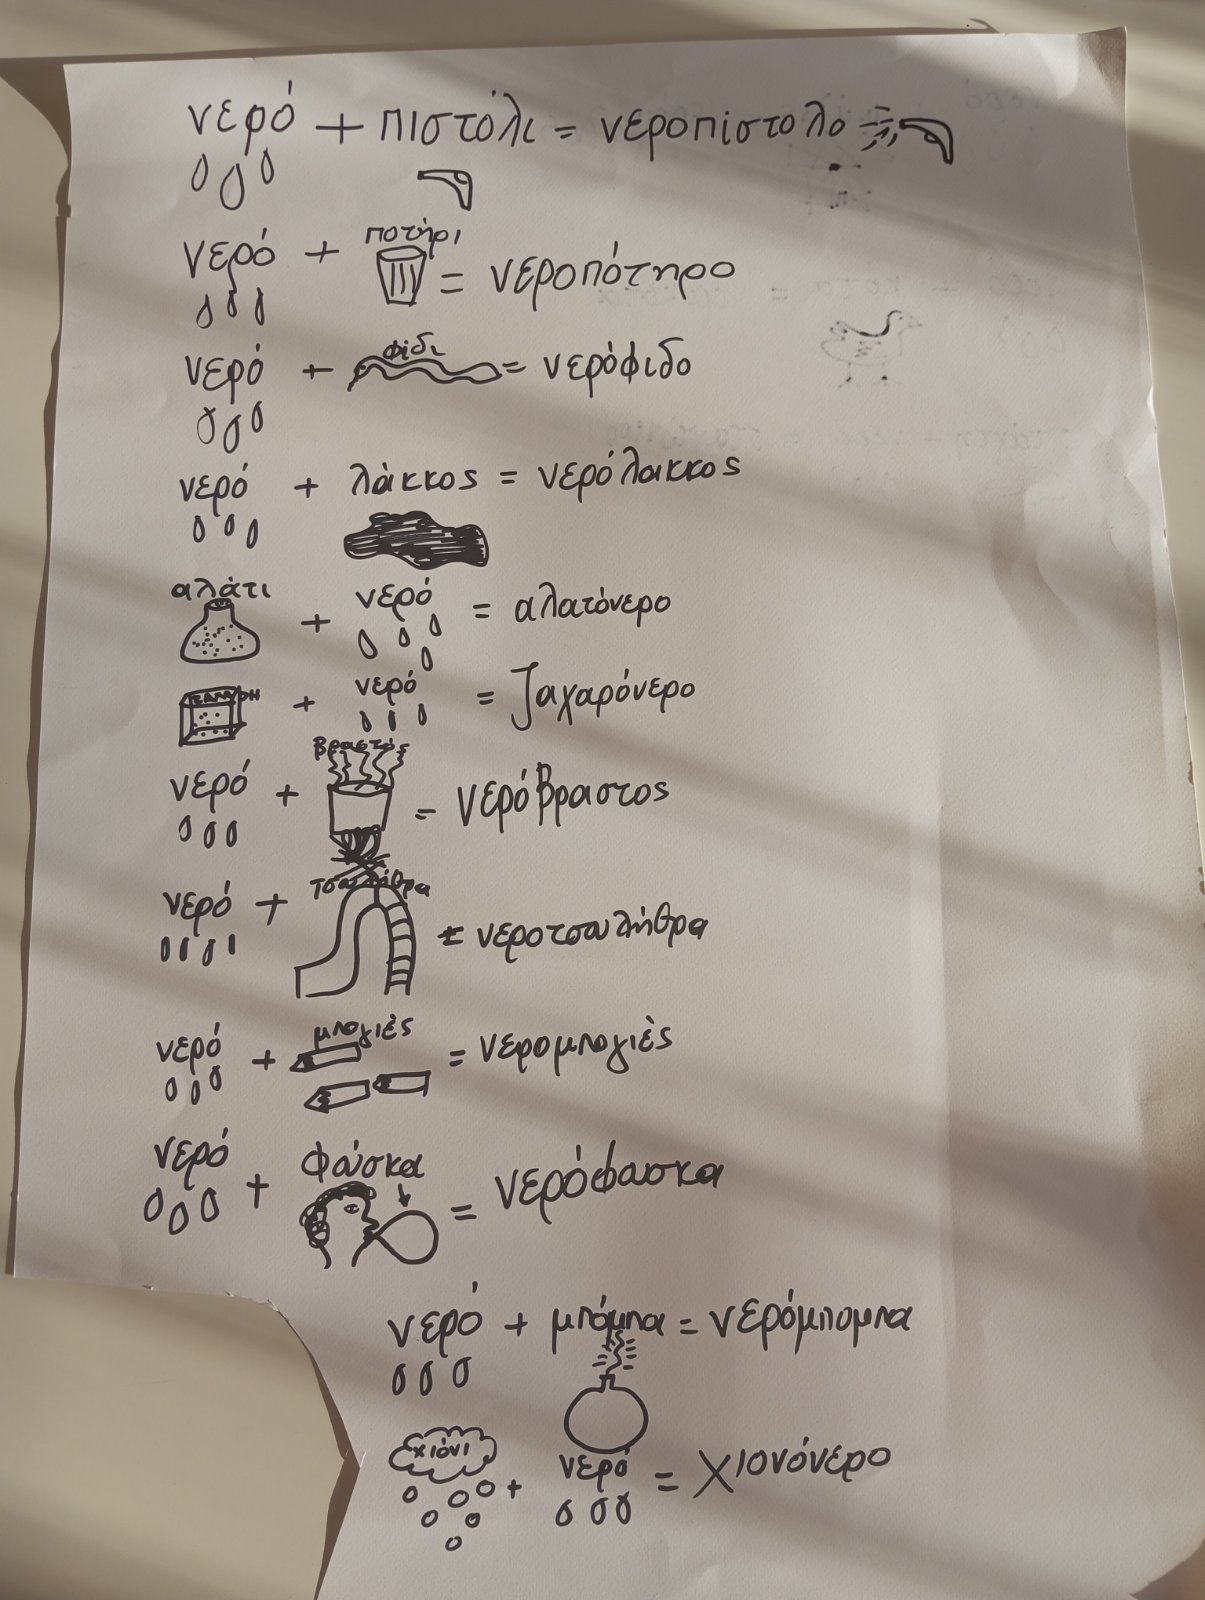 νερό + πιστόλι = νεροπίστολο
νερό + ποτήρι = νεροπότηρο
νερό + φίδι = νερόφιδο
νερό + λάκκος = νερόλακκος
αλάτι + νερό = αλατόνερο
ζάχαρη + νερό = ζαχαρόνερο
νερό + βραστός = νερόβραστος
νερό + = νεροτσουλήθρα
νερό + μπογιές = νερομπογιές
νερό + φούσκα = νερόφουσκα
νερό + μπόμπα = νερόμπομπα
χιόνι + νερό = χιονόνερο